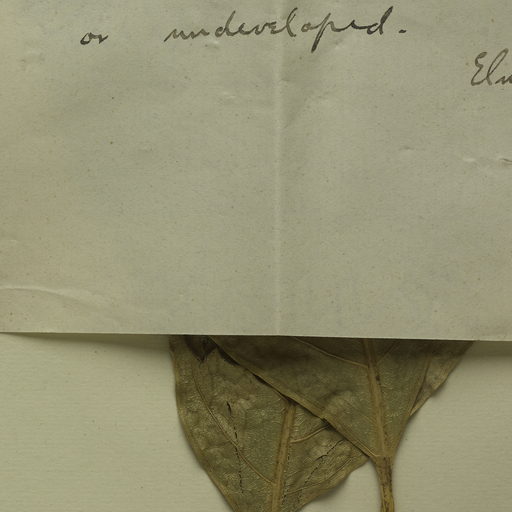 or undeveloped.